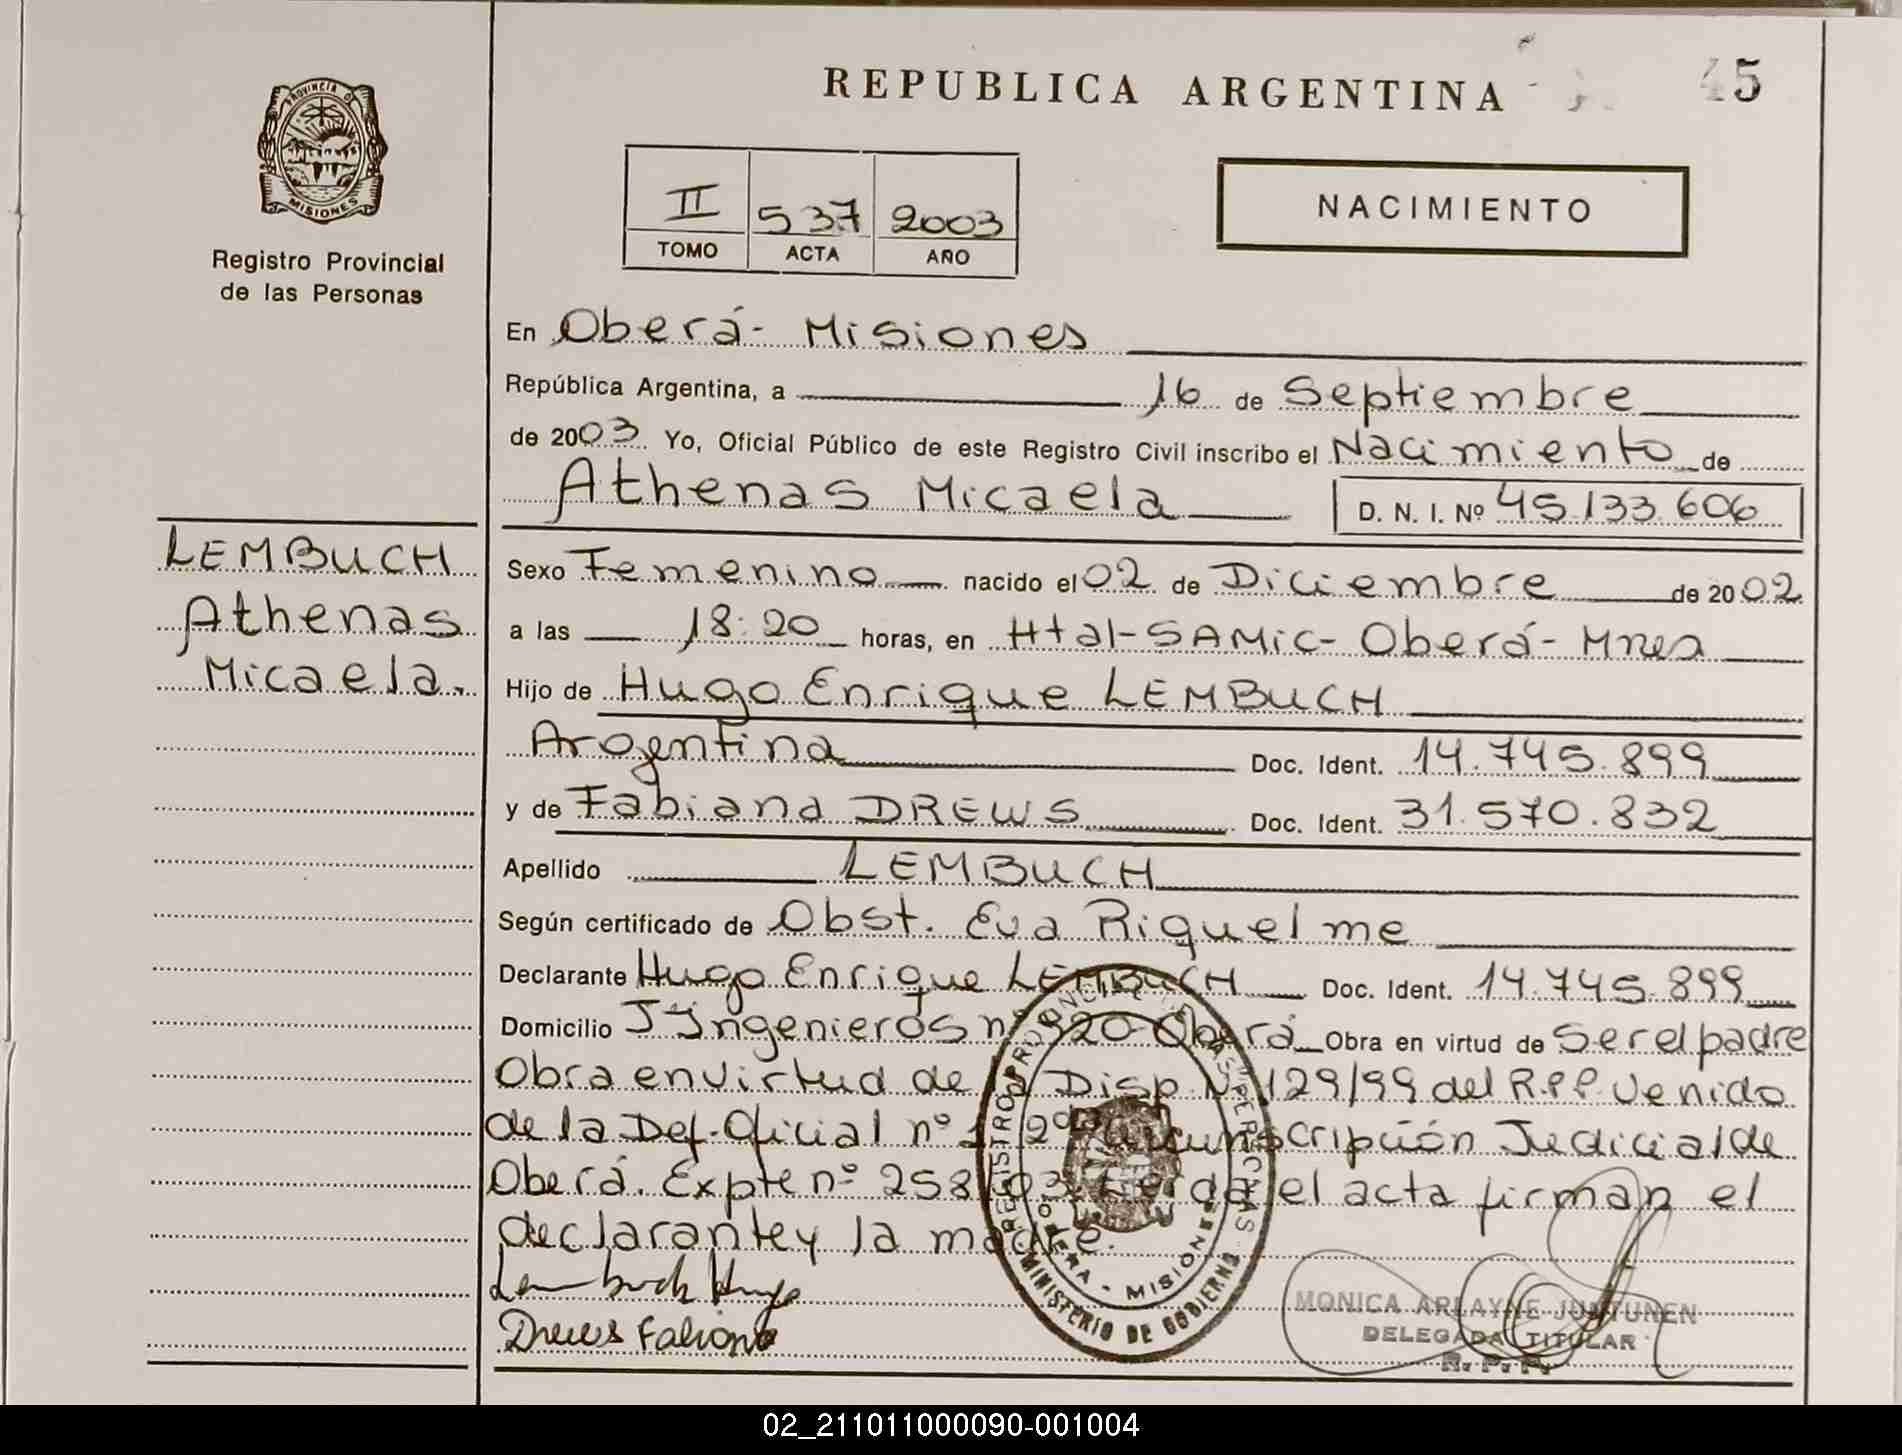 REPUBLICA ARGENTINA
45
PROVINCIA DE
MISIONES
Registro Provincial
de las Personas
II 537 2003
TOMO ACTA AÑO
NACIMIENTO
En Oberá - Misiones
República Argentina, a 16 de Septiembre
de 2003 Yo, Oficial Público de este Registro Civil inscribo el Nacimiento de
Athenas Micaela D. N. I. Nº 45.133.606
LEMBUCH
Athenas
Micaela.
Sexo Femenino nacido el 02 de Diciembre de 2002
a las 18:20 horas, en Htal-SAMIC- Oberá- Mnes
Hijo de Hugo Enrique LEMBUCH
Argentina Doc. Ident. 14.745.899
y de Fabiana DREWS Doc. Ident. 31.570.832
Apellido LEMBUCH
Según certificado de Obst. Eva Riquelme
Declarante Hugo Enrique LEMBUCH Doc. Ident. 14.745.899
Domicilio J Ingenieros nº 920-Oberá Obra en virtud de Ser el padre
Obra en virtud de la Disp Nº 129/99 del R.P.P. Venido
de la Def. Oficial nº 1 2da Circunscripción Judicial de
Oberá. Expte nº 258/03. Leída el acta firman el
declarante y la madre.
Lembuch Hugo
Drews Fabiana
REGISTRO PROVINCIAL DE LAS PERSONAS
OBERA - MISIONES
MINISTERIO DE GOBIERNO
MONICA ARLAYNE JUNTUNEN
DELEGADA TITULAR
R. P. P.
02_211011000090-001004